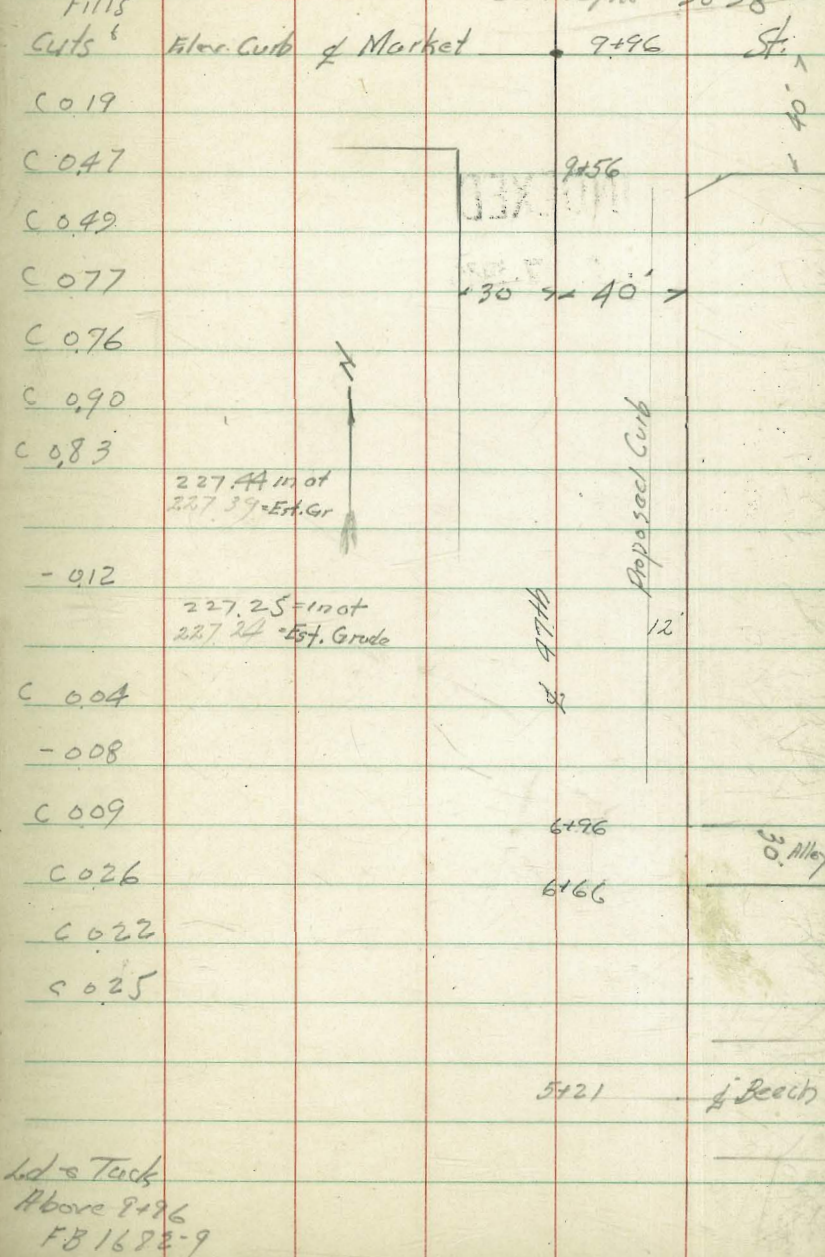 Fills
Cuts & Elev. Curb ℄ Market 9+96 St.
40'
C 0.19
C 0.47 9+56
INDEXED
C 0.49
C 0.77 30 40'
C 0.76
N
C 0.90
C 0.83
Proposed Curb
227.44 in ot
227.39 = Est. Gr
- 0.12
227.25 = in ot
227.24 = Est. Grade
12'
℄ 47th
C 0.04
- 0.08
C 0.09 6+96
30' Alley
C 0.26 6+66
C 0.22
C 0.25
5+21 ℄ Beech
Ld & Tack
Above 9+96
FB 1682-9